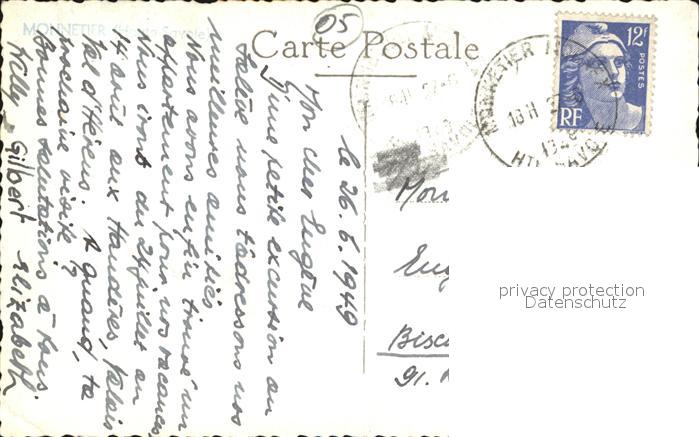 MONNETIER (Haute Savoie)
05
Carte Postale
12f
POSTES
RF
MONNETIER
18 H
1949
HTE SAVOIE
le 26.6.1949
Mon cher Eugène
D'une petite excursion au
Salève nous t'adressons nos
meilleures amitiés
Nous avons enfin trouvé un
appartement pour nos vacances.
Nous irons du 24 juillet au
14 août aux Haudères, Valais
Val d'Hérens. A quand, ta
prochaine visite?
Bonnes salutations à tous.
Gilbert Elizabeth
Mon
Eug
Bisc
privacy protection
Datenschutz